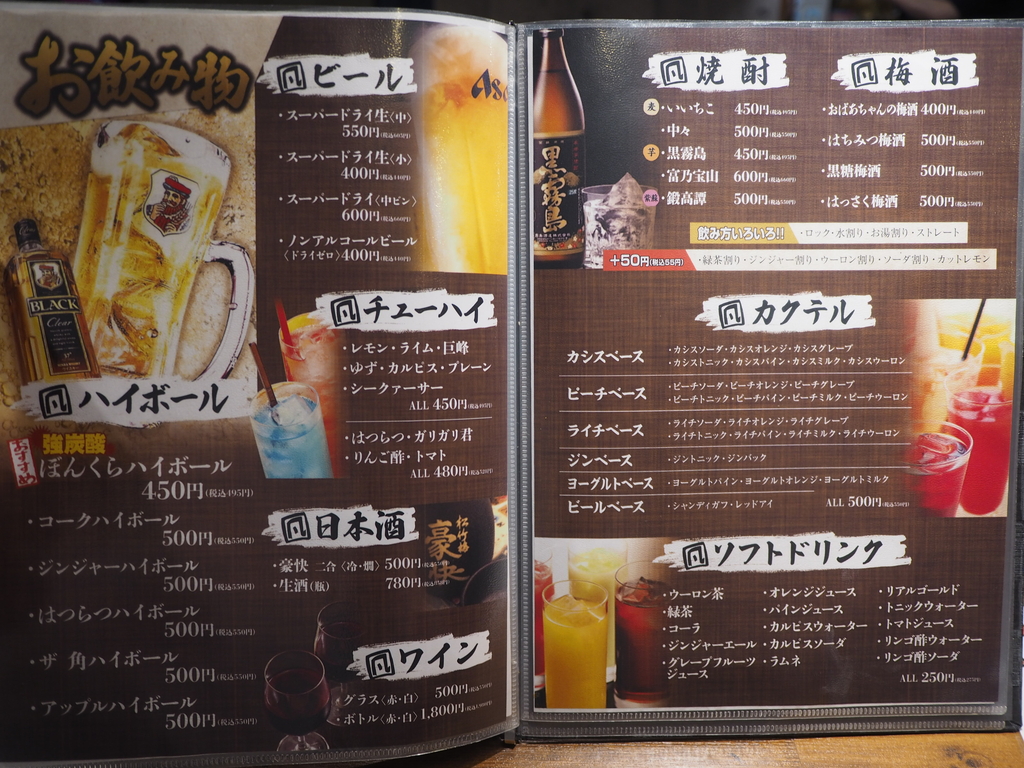 お飲み物
BLACK
Clear
ハイボール
おすすめ
強炭酸
ぼんくらハイボール
450円(税込495円)
・コークハイボール
500円(税込550円)
・ジンジャーハイボール
500円(税込550円)
・はつらつハイボール
500円(税込550円)
・ザ 角ハイボール
500円(税込550円)
・アップルハイボール
500円(税込550円)
ビール
・スーパードライ生〈中〉
550円(税込605円)
・スーパードライ生〈小〉
400円(税込440円)
・スーパードライ〈中ビン〉
600円(税込660円)
・ノンアルコールビール
〈ドライゼロ〉400円(税込440円)
チューハイ
・レモン・ライム・巨峰
・ゆず・カルピス・プレーン
・シークァーサー
ALL 450円(税込495円)
・はつらつ・ガリガリ君
・りんご酢・トマト
ALL 480円(税込528円)
日本酒
松竹梅
豪快
・豪快 二合〈冷・燗〉 500円(税込550円)
・生酒(瓶) 780円
ワイン
・グラス〈赤・白〉 500円(税込550円)
・ボトル〈赤・白〉 1,800円(税込1,980円)
黒霧島
焼酎
麦
・いいちこ 450円(税込495円)
・中々 500円(税込550円)
芋
・黒霧島 450円(税込495円)
・富乃宝山 600円(税込660円)
紫蘇
・鍛高譚 500円(税込550円)
梅酒
・おばあちゃんの梅酒 400円(税込440円)
・はちみつ梅酒 500円(税込550円)
・黒糖梅酒 500円(税込550円)
・はっさく梅酒 500円(税込550円)
飲み方いろいろ!! ・ロック・水割り・お湯割り・ストレート
+50円(税込55円) ・緑茶割り・ジンジャー割り・ウーロン割り・ソーダ割り・カットレモン
カクテル
カシスベース ・カシスソーダ・カシスオレンジ・カシスグレープ
・カシストニック・カシスパイン・カシスミルク・カシスウーロン
ピーチベース ・ピーチソーダ・ピーチオレンジ・ピーチグレープ
・ピーチトニック・ピーチパイン・ピーチミルク・ピーチウーロン
ライチベース ・ライチソーダ・ライチオレンジ・ライチグレープ
・ライチトニック・ライチパイン・ライチミルク・ライチウーロン
ジンベース ・ジントニック・ジンバック
ヨーグルトベース ・ヨーグルトパイン・ヨーグルトオレンジ・ヨーグルトミルク
ビールベース ・シャンディガフ・レッドアイ ALL 500円(税込550円)
ソフトドリンク
・ウーロン茶
・緑茶
・コーラ
・ジンジャーエール
・グレープフルーツ
ジュース
・オレンジジュース
・パインジュース
・カルピスウォーター
・カルピスソーダ
・ラムネ
・リアルゴールド
・トニックウォーター
・トマトジュース
・リンゴ酢ウォーター
・リンゴ酢ソーダ
ALL 250円(税込275円)